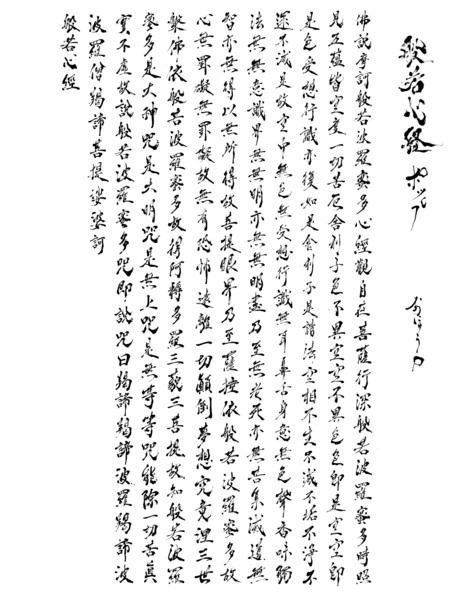 般若心経
佛説摩訶般若波羅蜜多心經觀自在菩薩行深般若波羅蜜多時照
見五蘊皆空度一切苦厄舎利子色不異空空不異色色即是空空即
是色受想行識亦復如是舎利子是諸法空相不生不滅不垢不淨不
增不減是故空中無色無受想行識無耳鼻舌身意無色聲香味觸
法無無意識界無無明亦無無明盡乃至無老死亦無苦集滅道無
智亦無得以無所得故菩提眼界乃至薩埵依般若波羅蜜多故
心無罣礙無罣礙故無有恐怖遠離一切顛倒夢想究竟涅三世
槃佛依般若波羅蜜多故得阿耨多羅三藐三菩提故知般若波羅
蜜多是大神咒是大明咒是無上咒是無等等咒能除一切苦真
實不虚故說般若波羅蜜多咒即說咒曰羯諦羯諦波羅羯諦波
波羅僧羯諦菩提娑婆訶
般若心經